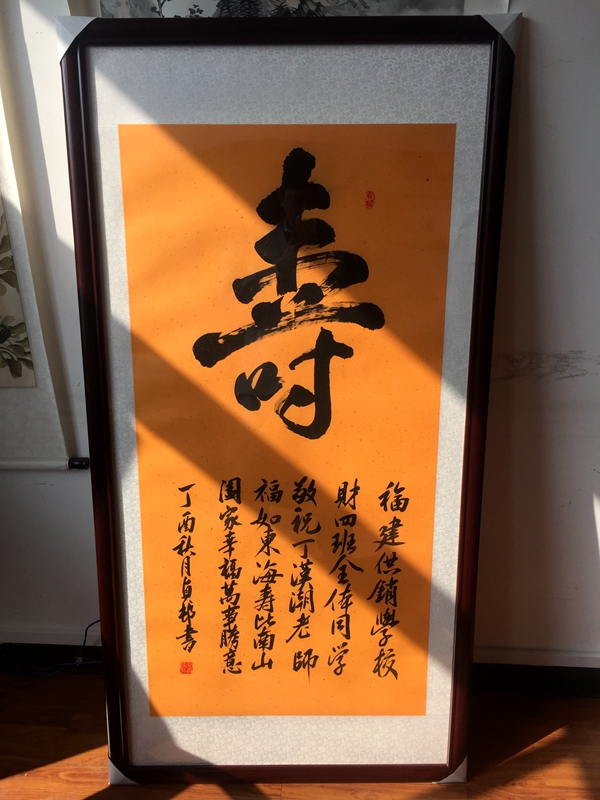 壽
福建供銷學校
財四班全体同学
敬祝丁漢潮老師
福如東海寿比南山
闔家幸福萬事勝意
丁酉秋月貞邦書